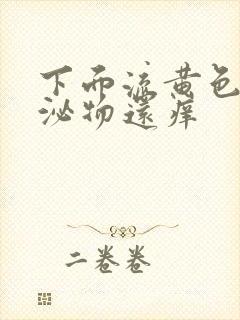 下面流黄色
泌物还痒
二卷卷